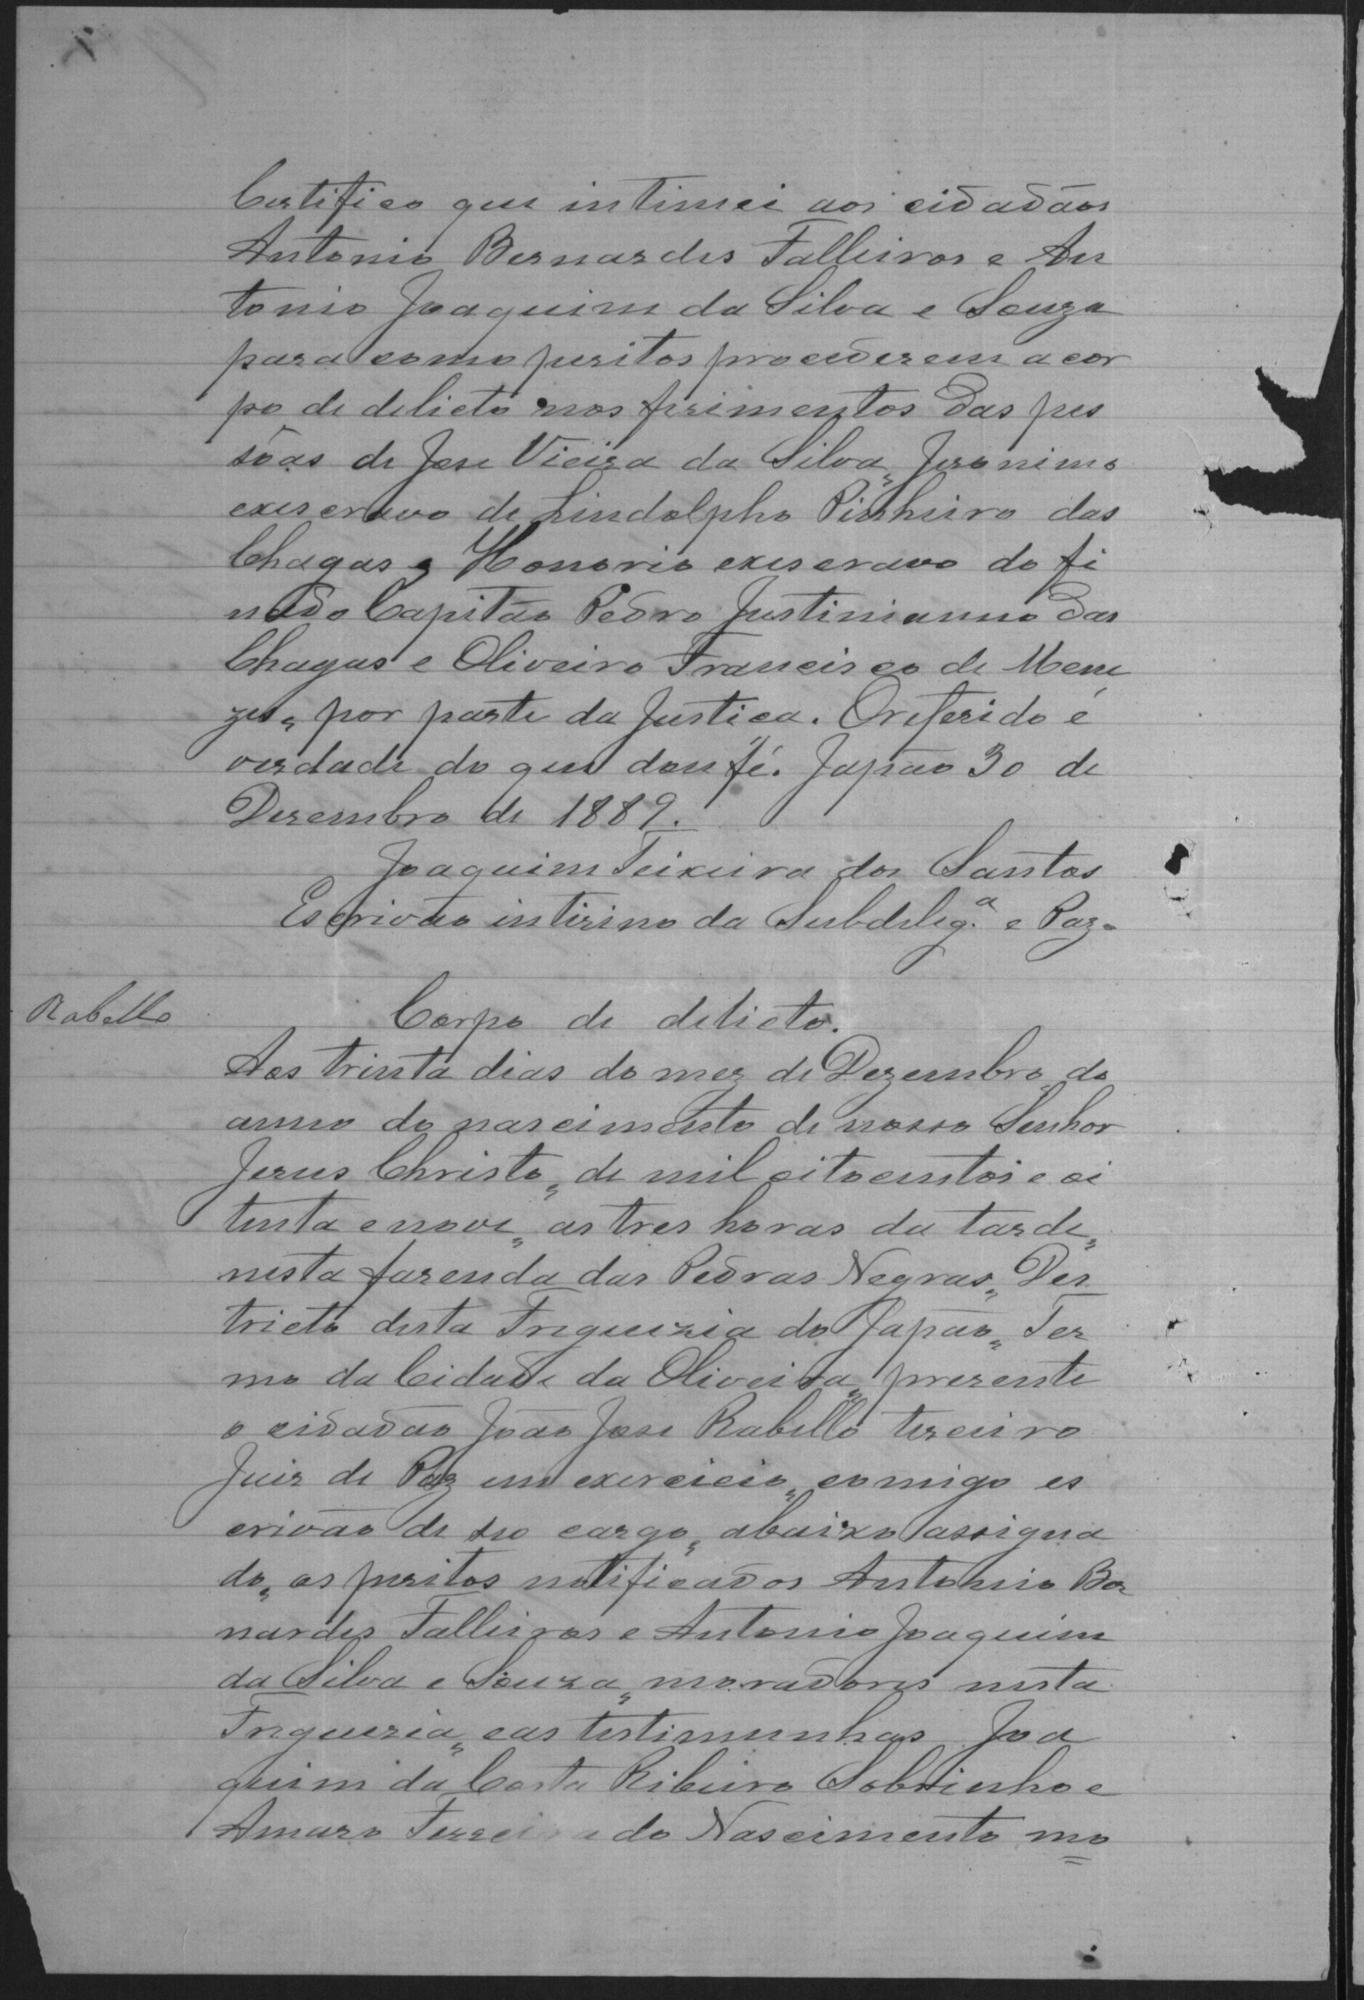 Certifico que intimei aos cidadãos
Antonio Bernardes Falleiros e An
tonio Joaquim da Silva e Souza
para como peritos procederem a cor
po de delicto nos ferimentos das pes
sôas de Jose Vieira da Silva„ Jeronimo
exiscravo de Lindolpho Pinheiro das
Chagas e Honorio exiscravo do fi
nado Capitão Pedro Justinianno das
Chagas e Oliveiro Francisco de Mene
zes„ por parte da Justiça. Oreferido é
verdade do que dou fé. Japão 30 de
Dezembro de 1889.
Joaquim Teixeira dos Santos
Escrivão intirino da Subdeleg.ª e Paz.
Rabello
Corpo de delicto.
Aos trinta dias do mez de Dezembro do
anno do nascimento de nosso Senhor
Jezus Christo„ de mil oitocentos e oi
tenta e nove„ as tres horas da tarde„
nesta fazenda das Pedras Negras„ Des
tricto desta Freguezia do Japão„ Ter
mo da Cidade da Oliveira„ prezente
o cidadão João Jose Rabello terceiro
Juiz de Paz em exercicio„ comigo es
crivão de seo cargo„ abaixo assigna
do„ os peritos notificados Antonio Ber
nardes Falleiros e Antonio Joaquim
da Silva e Souza„ moradores nesta
Freguezia„ eas testimunhas Joa
quim da Costa Ribeiro Sobrinho e
Amaro Ferreira do Nascimento mo